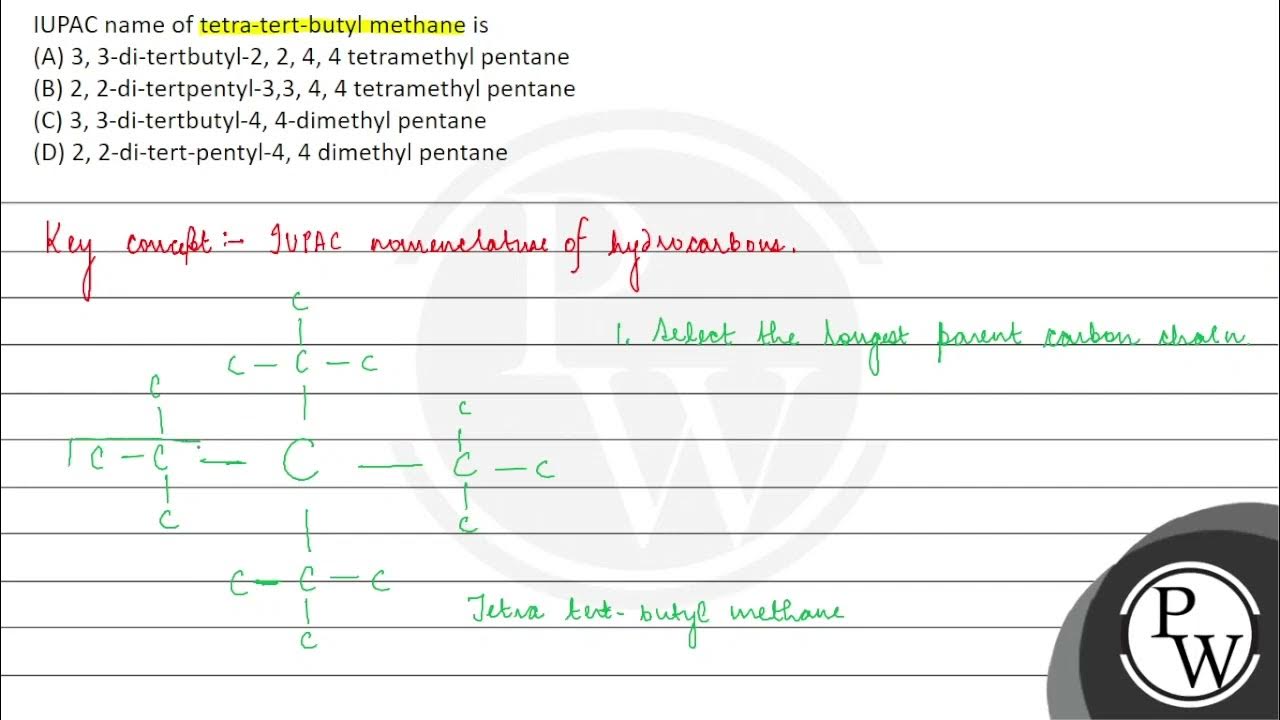 IUPAC name of tetra-tert-butyl methane is
(A) 3, 3-di-tertbutyl-2, 2, 4, 4 tetramethyl pentane
(B) 2, 2-di-tertpentyl-3,3, 4, 4 tetramethyl pentane
(C) 3, 3-di-tertbutyl-4, 4-dimethyl pentane
(D) 2, 2-di-tert-pentyl-4, 4 dimethyl pentane
Key concept :- IUPAC nomenclature of hydrocarbons.
1. Select the longest parent carbon chain
C
C - C - C
C
C
C - C - C - C - C
C
C
C - C - C
C
Tetra tert-butyl methane
P
W
P
W